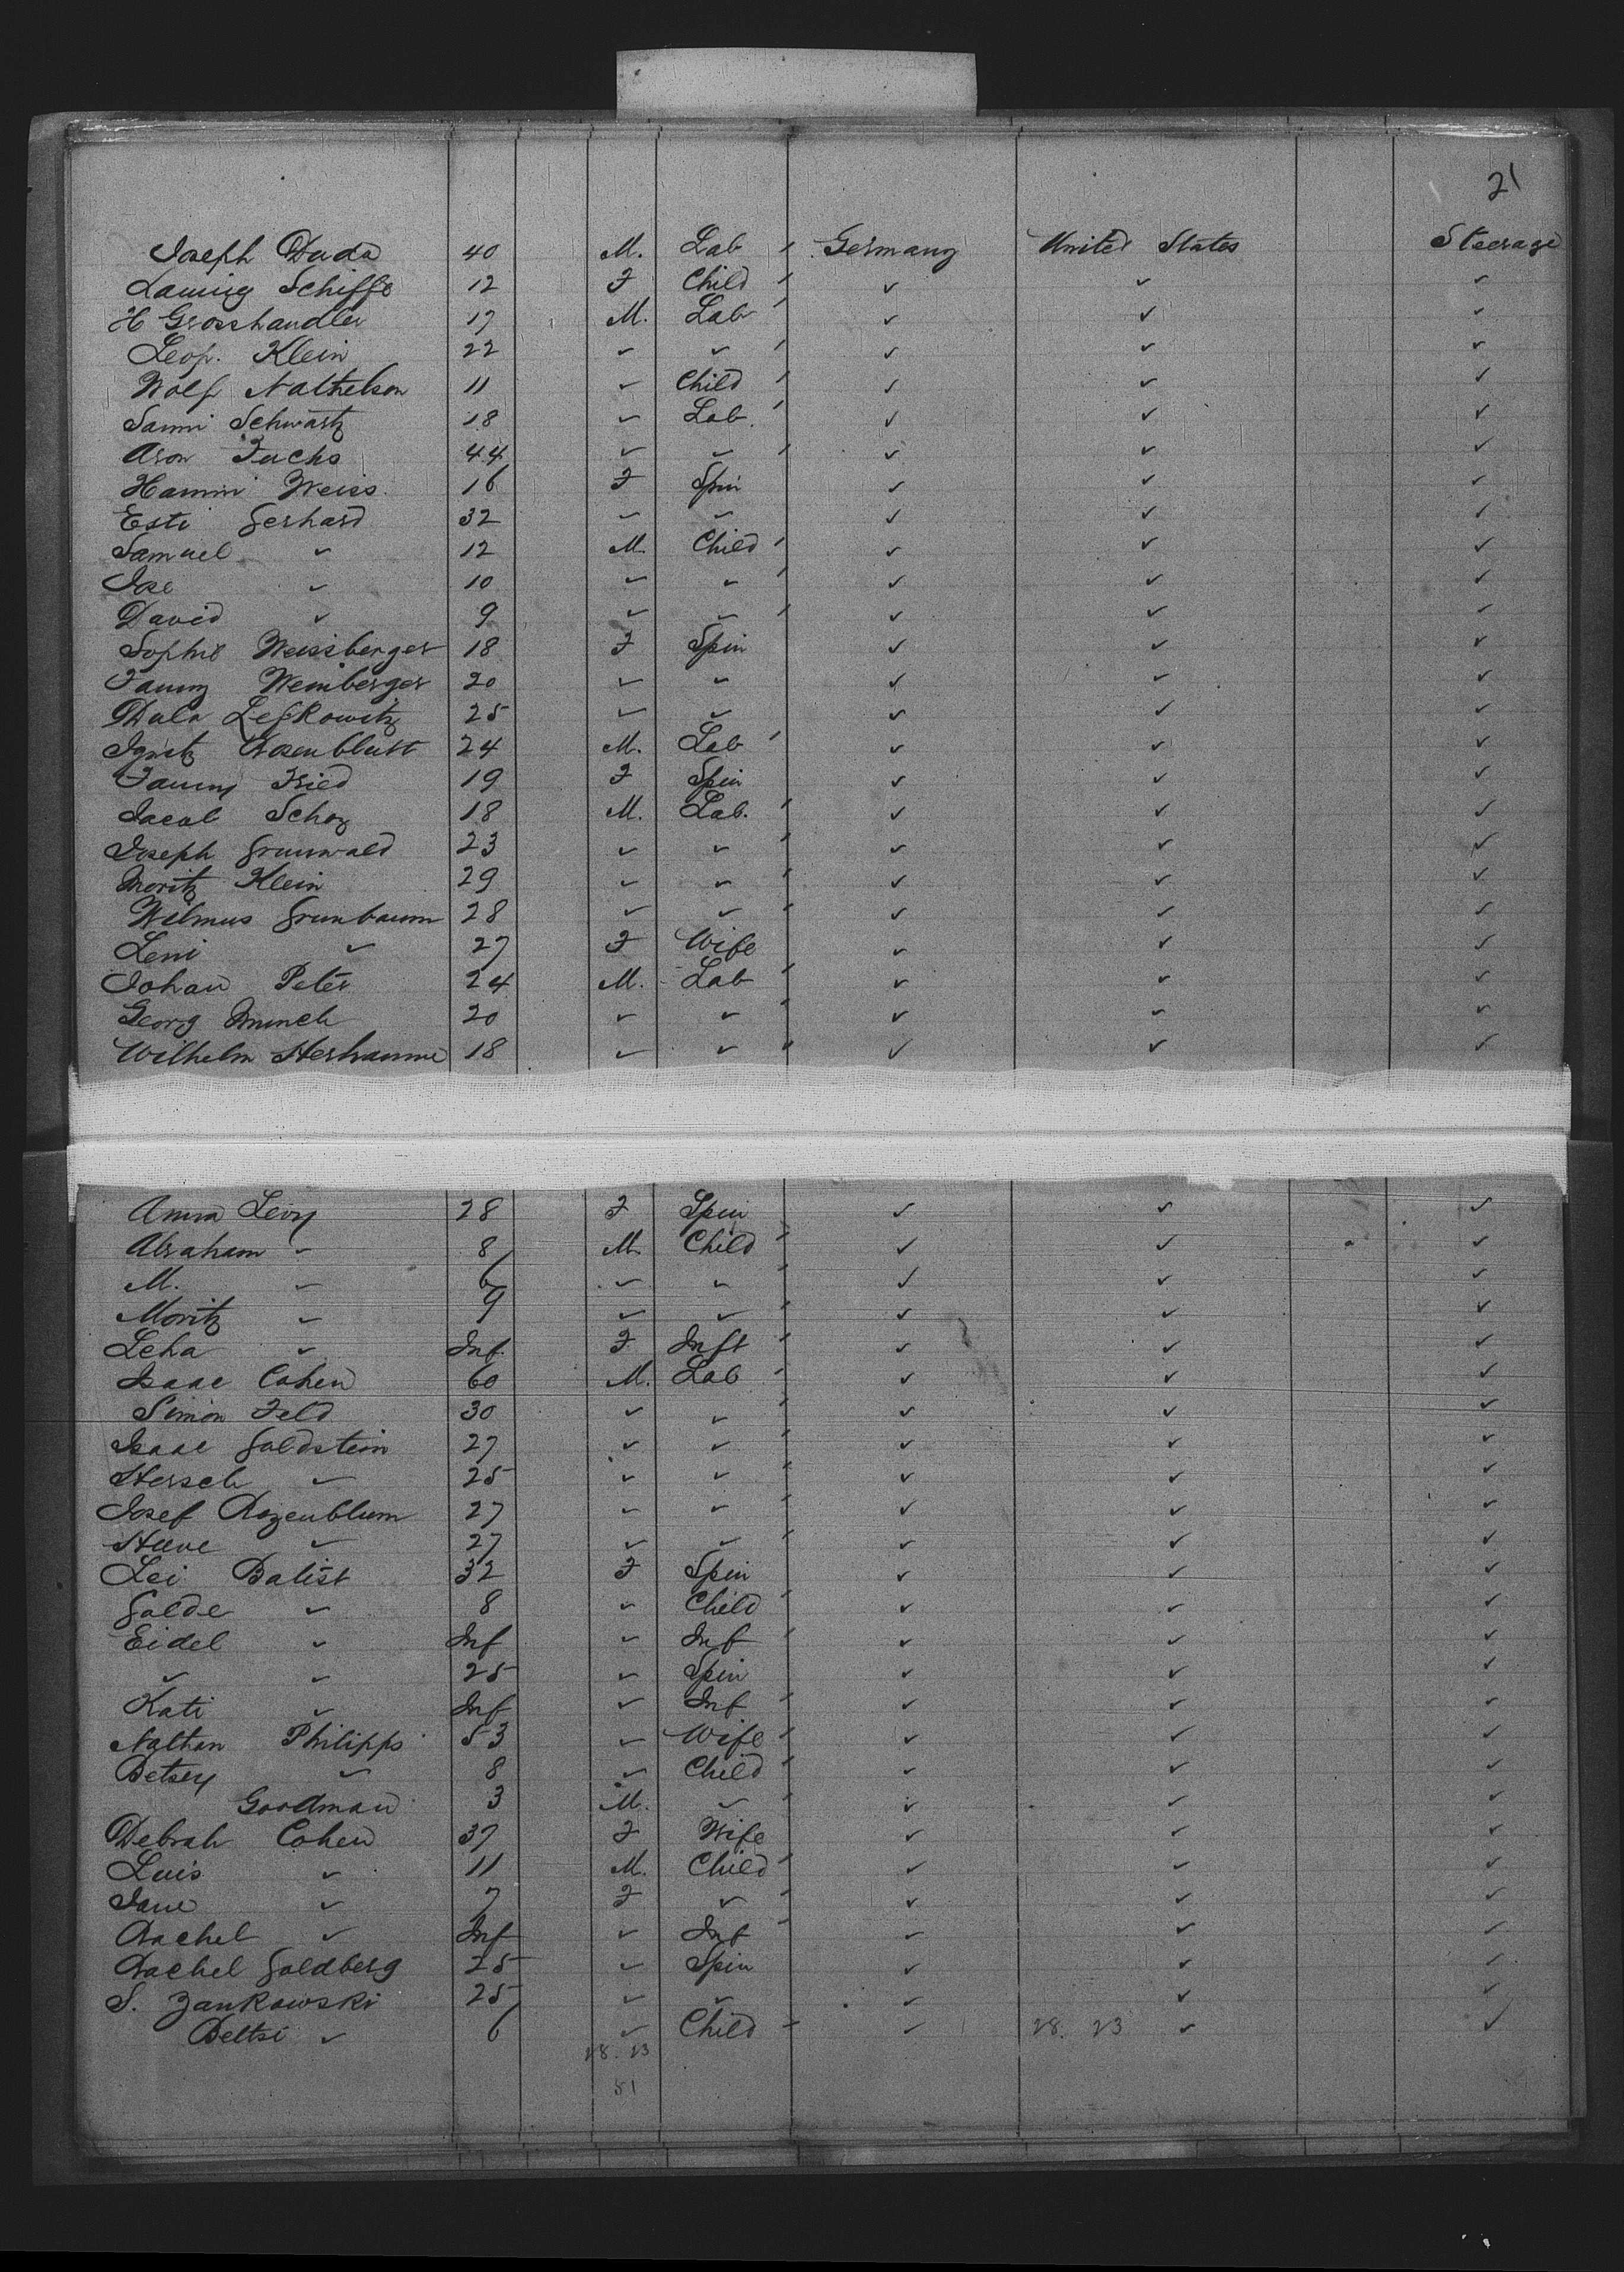 21
Joseph Duda 40 M. Lab ′ Germany United States Steerage
Schiffe 12 F Child ′ ✓ ✓ ✓
H Grosshandler 17 M. Lab ′ ✓ ✓ ✓
Leop. Klein 22 ✓ ✓ ′ ✓ ✓ ✓
Wolf Nathelson 11 ✓ Child ′ ✓ ✓ ✓
Sami Schwartz 18 ✓ Lab. ′ ✓ ✓ ✓
Aron Fuchs 44 ✓ ✓ ′ ✓ ✓ ✓
Hanni Weiss. 16 F Spin ✓ ✓ ✓
Esti Gerhard 32 ✓ ✓ ✓ ✓ ✓
Samuel ✓ 12 M. Child ′ ✓ ✓ ✓
Jose ✓ 10 ✓ ✓ ′ ✓ ✓ ✓
David ✓ 9 ✓ ✓ ′ ✓ ✓ ✓
Sophie Weissberger 18 F Spin ✓ ✓ ✓
Fanny Weinberger 20 ✓ ✓ ✓ ✓ ✓
Lefkowitz 25 ✓ ✓ ✓ ✓ ✓
Ignatz Rosenblutt 24 M. Lab ′ ✓ ✓ ✓
Fanny Fried 19 F Spin ✓ ✓ ✓
Jacob Schoy 18 M. Lab. ′ ✓ ✓ ✓
Joseph Grunwald 23 ✓ ✓ ′ ✓ ✓ ✓
Moritz Klein 29 ✓ ✓ ′ ✓ ✓ ✓
Wilmus Grunbaum 28 ✓ ✓ ′ ✓ ✓ ✓
Leni ✓ 27 F Wife ✓ ✓ ✓
Johan Peter 24 M. Lab ′ ✓ ✓ ✓
Georg Munch 20 ✓ ✓ ′ ✓ ✓ ✓
Wilhelm 18 ✓ ✓ ′ ✓ ✓ ✓
Anna Levy 28 F Spin ✓ ✓ ✓
Abraham ✓ 8 M. Child ′ ✓ ✓ ✓
M. ✓ 6 ✓ ✓ ′ ✓ ✓ ✓
Moritz ✓ 9 ✓ ✓ ′ ✓ ✓ ✓
Leha ✓ Inf. F Inft ′ ✓ ✓ ✓
Isaac Cohen 60 M. Lab ′ ✓ ✓ ✓
Simon Feld 30 ✓ ✓ ′ ✓ ✓ ✓
Isaac Goldstein 27 ✓ ✓ ′ ✓ ✓ ✓
Hersch ✓ 25 ✓ ✓ ′ ✓ ✓ ✓
Josef Rozenblum 27 ✓ ✓ ′ ✓ ✓ ✓
✓ 27 ✓ ✓ ′ ✓ ✓ ✓
Lei Batist 32 F Spin ✓ ✓ ✓
Golde ✓ 8 ✓ Child ′ ✓ ✓ ✓
Eidel ✓ Inf ✓ Inf ′ ✓ ✓ ✓
✓ ✓ 25 ✓ Spin ✓ ✓ ✓
Kati ✓ Inf ✓ Inf ′ ✓ ✓ ✓
Nathan Philipps 53 ✓ Wife ′ ✓ ✓ ✓
Betsey ✓ 8 ✓ Child ′ ✓ ✓ ✓
Goodman 3 M. ✓ ′ ✓ ✓ ✓
Debrah Cohen 37 F Wife ✓ ✓ ✓
Luis ✓ 11 M. Child ′ ✓ ✓ ✓
Jane ✓ 7 F ✓ ′ ✓ ✓ ✓
Rachel ✓ Inf ✓ Inf ′ ✓ ✓ ✓
Rachel Goldberg 25 ✓ Spin ✓ ✓ ✓
S. Zankowski 25 ✓ ✓ ✓ ✓ ✓
Beltsi ✓ 6 ✓ Child ′ ✓ 28. 23 ✓ ✓
28. 23
51